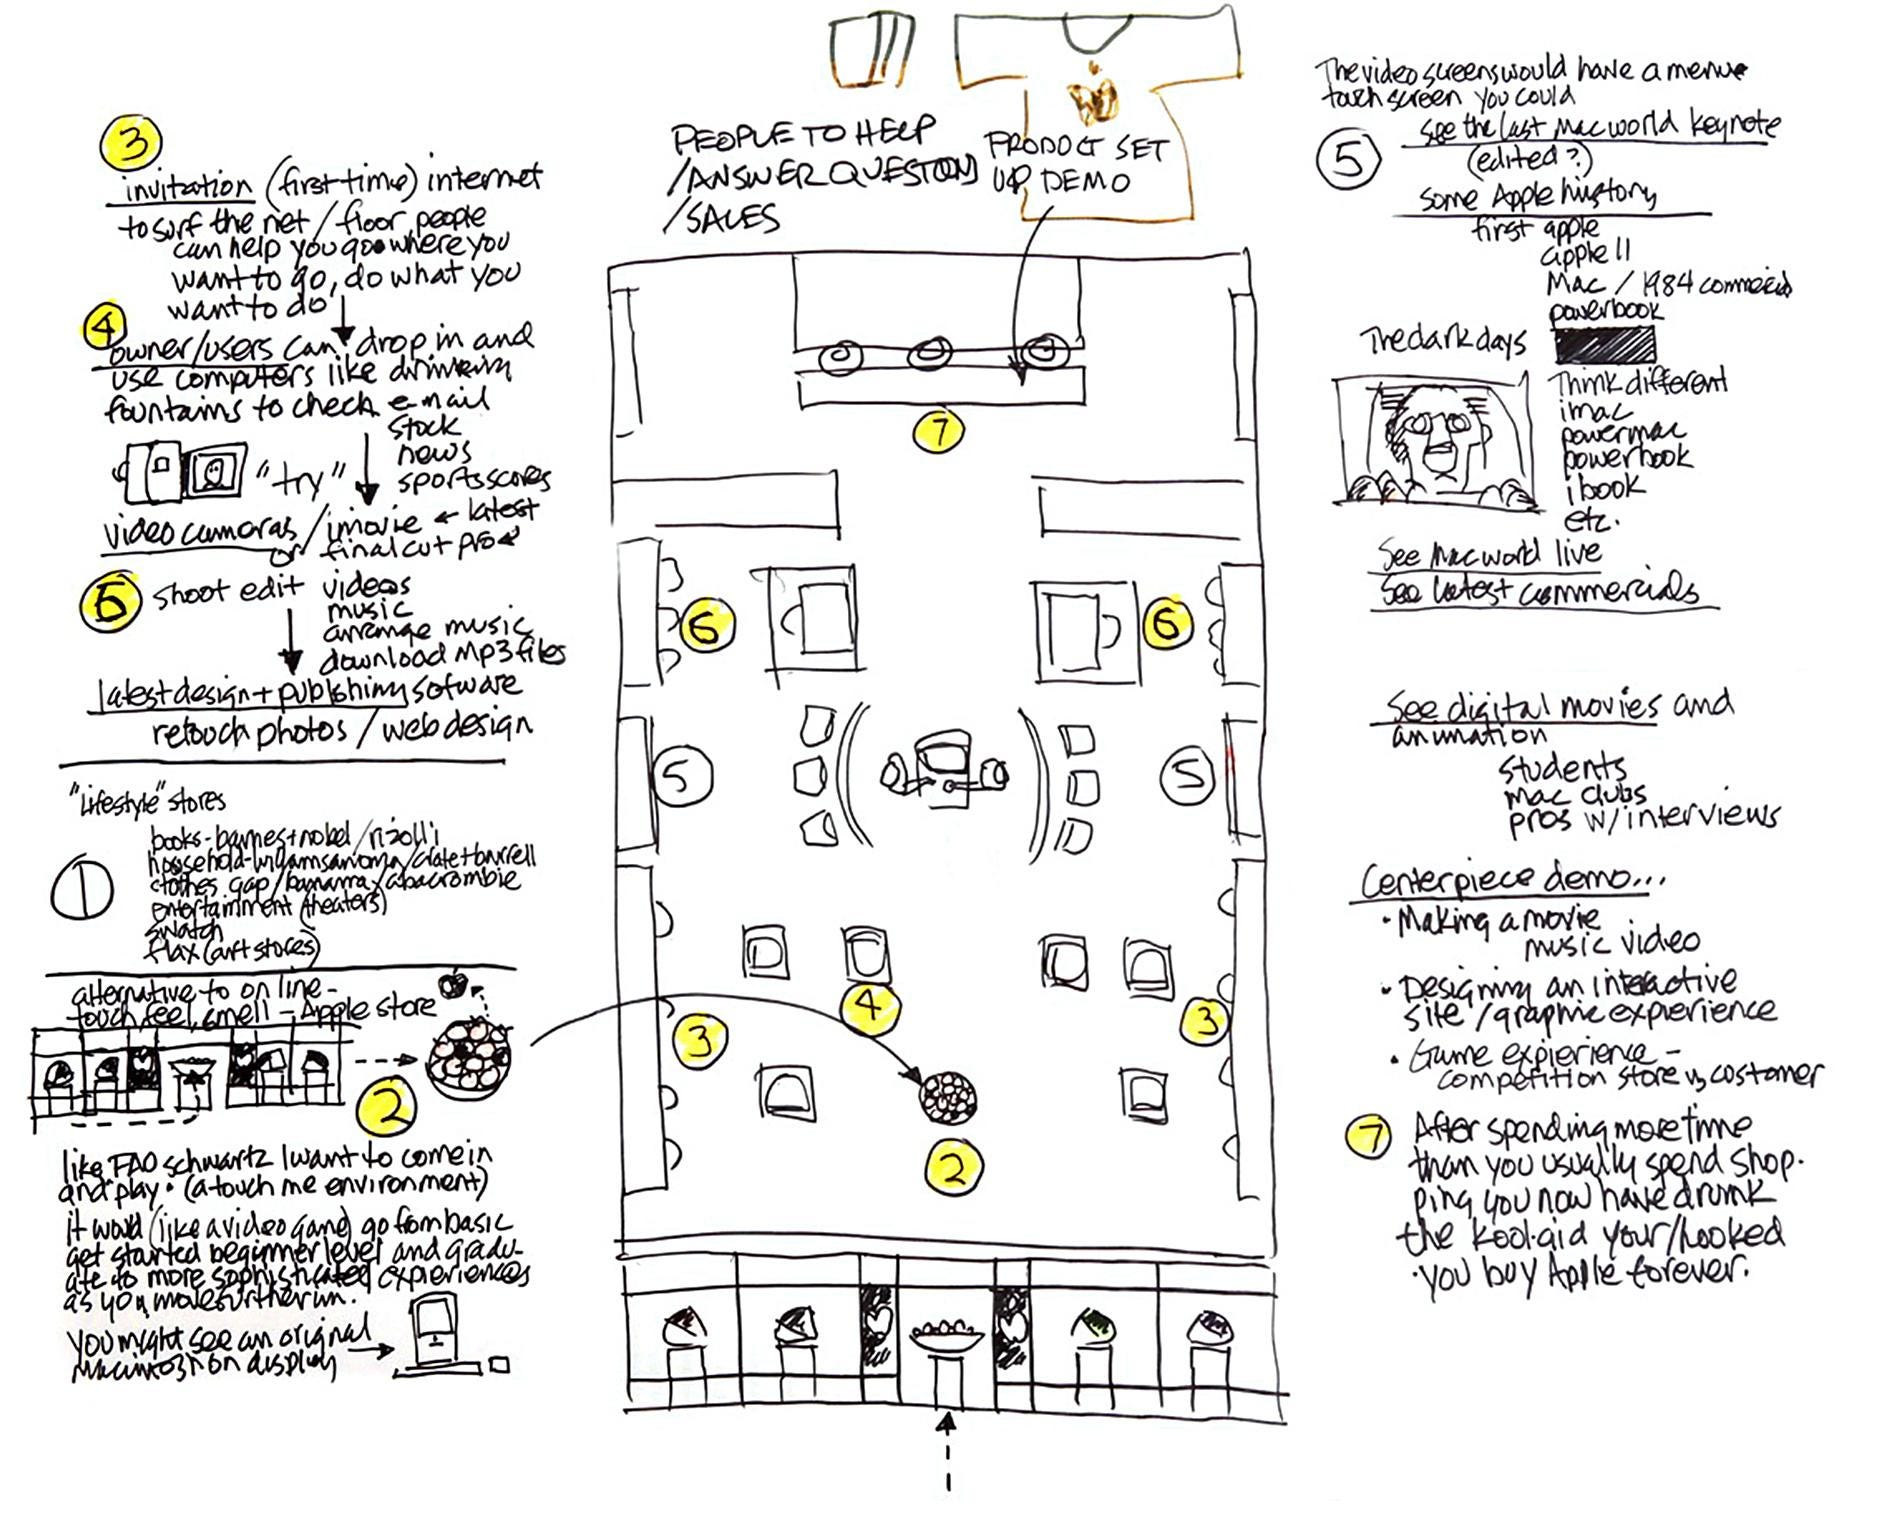 3
invitation (first time) internet
to surf the net / floor people
can help you goo where you
want to go, do what you
want to do
4
owner/users can drop in and
use computers like drinking
fountains to check e-mail
stock
news
sports scores
"try"
video cameras / imovie ← latest
or final cut pro
6 shoot edit videos
music
arrange music
download Mp3 files
latest design + publishing sofware
retouch photos / web design
"Lifestyle" stores
1
books - barnes + nobel / rizolli
household - williamsanoma / crate + barrell
clothes gap / banana / abacrombie
entertainment (theaters)
swatch
flax (art stores)
alternative to on line -
touch, feel, smell - Apple store
2
like FAO schwartz I want to come in
and play. (a touch me environment)
it would (like a video game) go from basic
get started beginner level and gradu-
ate to more sophisticated expieriences
as you move further in.
you might see an original
macintosh on display
PEOPLE TO HELP
/ANSWER QUESTIONS
/SALES
PRODUCT SET
UP DEMO
7
6
6
5
5
4
3
3
2
The video screens would have a menue
touch screen you could
5
see the last Macworld keynote
(edited?)
some Apple hiystory
first apple
apple II
Mac / 1984 commercial
powerbook
The dark days
Think different
imac
powermac
powerbook
ibook
etc.
See Macworld live
See latest commercials
See digital movies and
animation
students
mac clubs
pros w/ interviews
Centerpiece demo...
• Making a movie
music video
• Designing an interactive
site / graphic expierience
• Game expierience -
competition store vs costomer
7 After spending more time
than you usually spend shop-
ping you now have drunk
the kool-aid your/hooked
·you buy Apple forever.